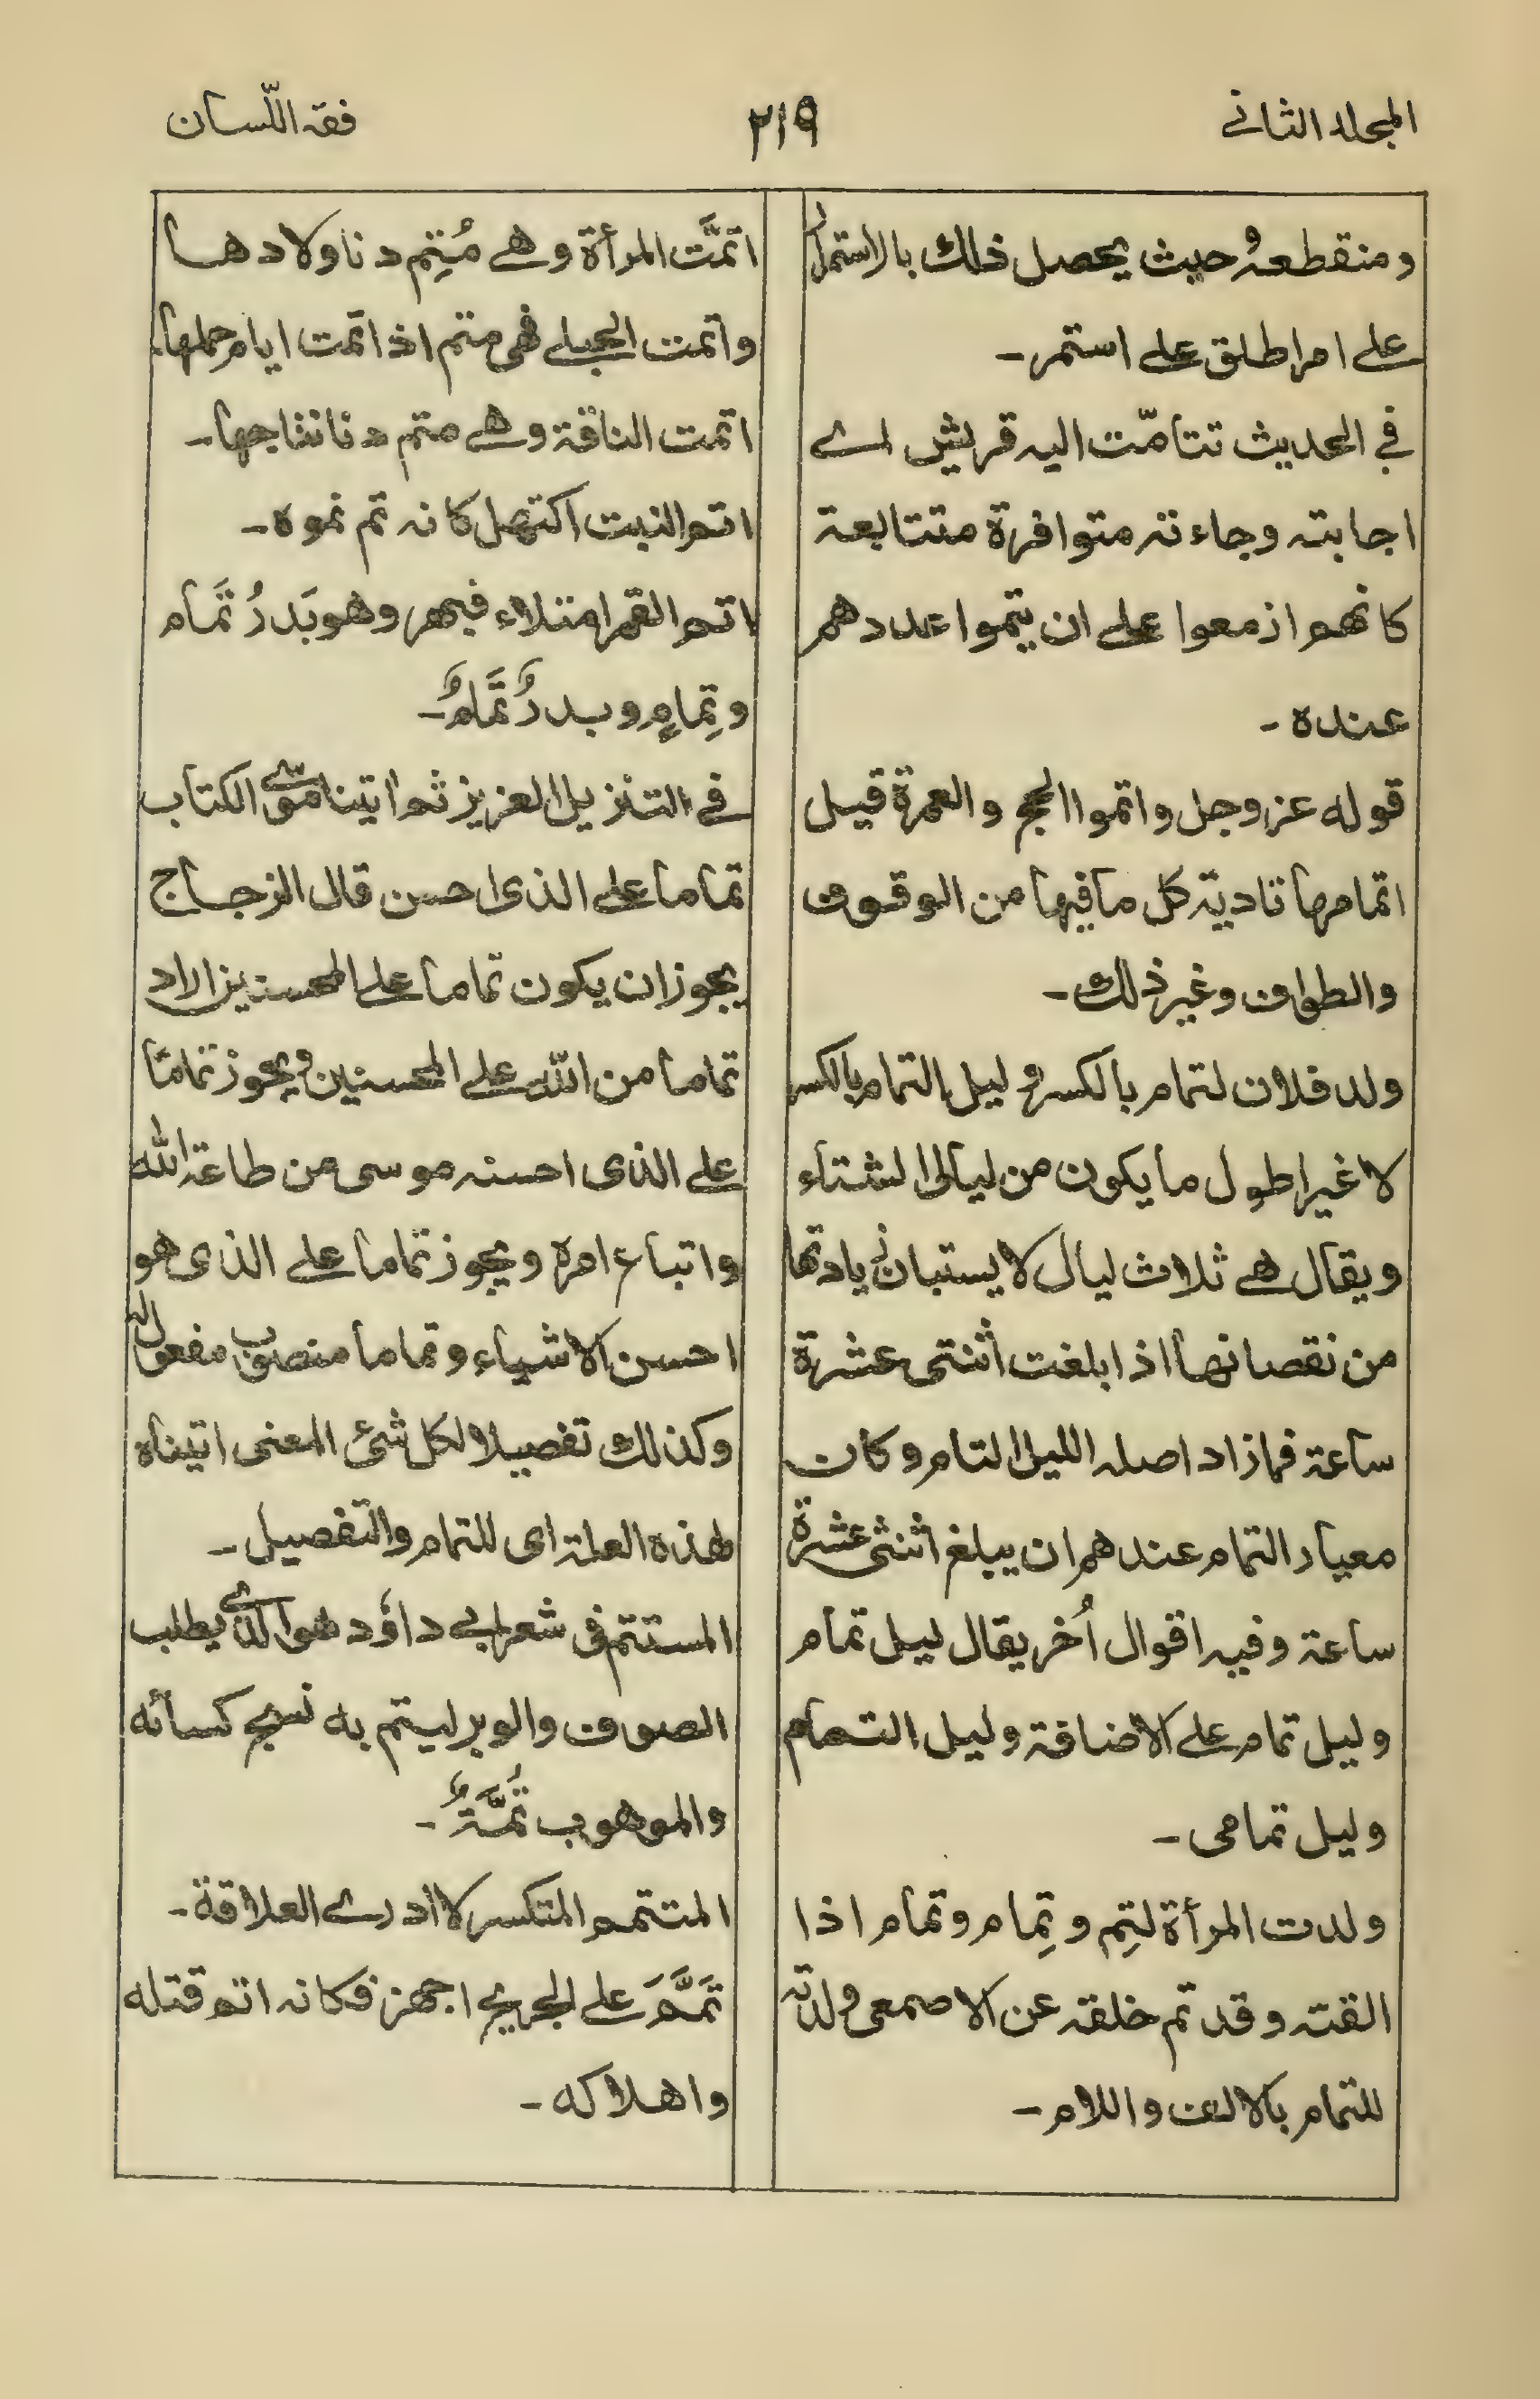 المجلد الثانى
٢١٩
فقه اللّسان
ومنقطعهُ حيث يحصل ذلك بالاستمرار
على امر اطلق على استمر۔
فى الحديث تتامّت اليه قريش اى
اجابته وجاءته متوافرة متتابعة
كانهم ازمعوا على ان يتموا عددهم
عنده۔
قوله عز وجل واتموا الحج والعمرة قيل
اتمامها تادية كل ما فيها من الوقوف
والطواف وغير ذلك۔
ولد فلان لتمام بالكسر و ليل التمام بالكسر
لا غير اطول ما يكون من ليالى الشتاء
ويقال هى ثلاث ليال لا يستبان زيادتها
من نقصانها اذا بلغت اثنتى عشرة
ساعة فما زاد اصله الليل التام وكان
معيار التمام عندهم ان يبلغ اثنتى عشرة
ساعة وفيه اقوال أُخر يقال ليل تمام
وليل تمام على الاضافة وليل التمام
وليل تمامى۔
ولدت المرأة لتِم وتِمام وتَمام اذا
القته وقد تم خلقه عن الاصمعى ولدته
للتمام بالالف واللام۔
اتمَّت المرأة وهى مُتِم دنا ولادها
واتمت الحبلى فهى متم اذا تمت ايام حملها۔
اتمت الناقة وهى متم دنا نتاجها۔
اتم النبت اكتهل كانه تم نموه۔
اتم القمر امتلاء فبهر وهو بَدرُ تَمام
وتِمامٍ وبدرٌ تَمامٌ۔
فى التنزيل العزيز ثم اتينا موسىٰ الكتاب
تماما على الذى احسن قال الزجاج
يجوز ان يكون تماما على المحسنين اراد
تماما من الله على المحسنين ويجوز تمامًا
على الذى احسنه موسى من طاعة الله
واتباع امره ويجوز تماما على الذى هو
احسن الاشياء وتماما منصوب مفعول له
وكذلك تفصيلا لكل شئ المعنى اتيناه
لهذه العلة اى للتمام والتفصيل۔
المستتم فى شعر ابى داؤد هو الذى يطلب
الصوف والوبر ليتم به نسج كسائه
والموهوب تُمَّةٌ۔
المتتم المتكسر لا ادرى العلاقة۔
تَمَّمَ على الجريح اجهز فكانه اتم قتله
واهلاكه۔